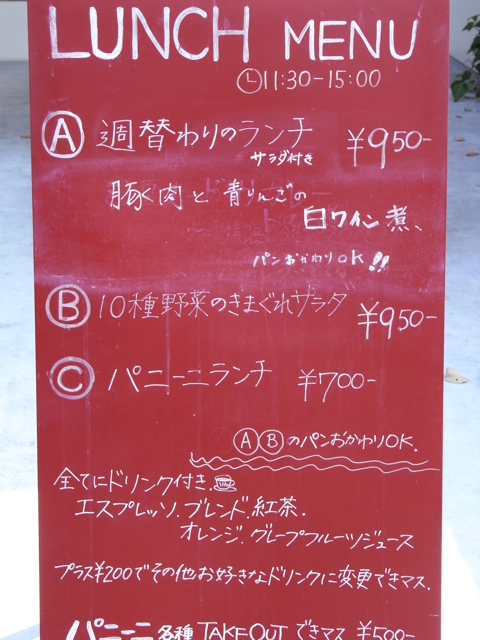 LUNCH MENU
11:30-15:00
Ⓐ 週替わりのランチ ¥950-
サラダ付き
豚肉と青りんごの
白ワイン煮、
パンおかわりOK!!
Ⓑ 10種野菜のきまぐれサラダ ¥950-
Ⓒ パニーニランチ ¥700-
ⒶⒷのパンおかわりOK.
全てにドリンク付き.
エスプレッソ.ブレンド.紅茶.
オレンジ.グレープフルーツジュース
プラス¥200でその他お好きなドリンクに変更できマス.
パニーニ各種TAKEOUTできマス ¥500-